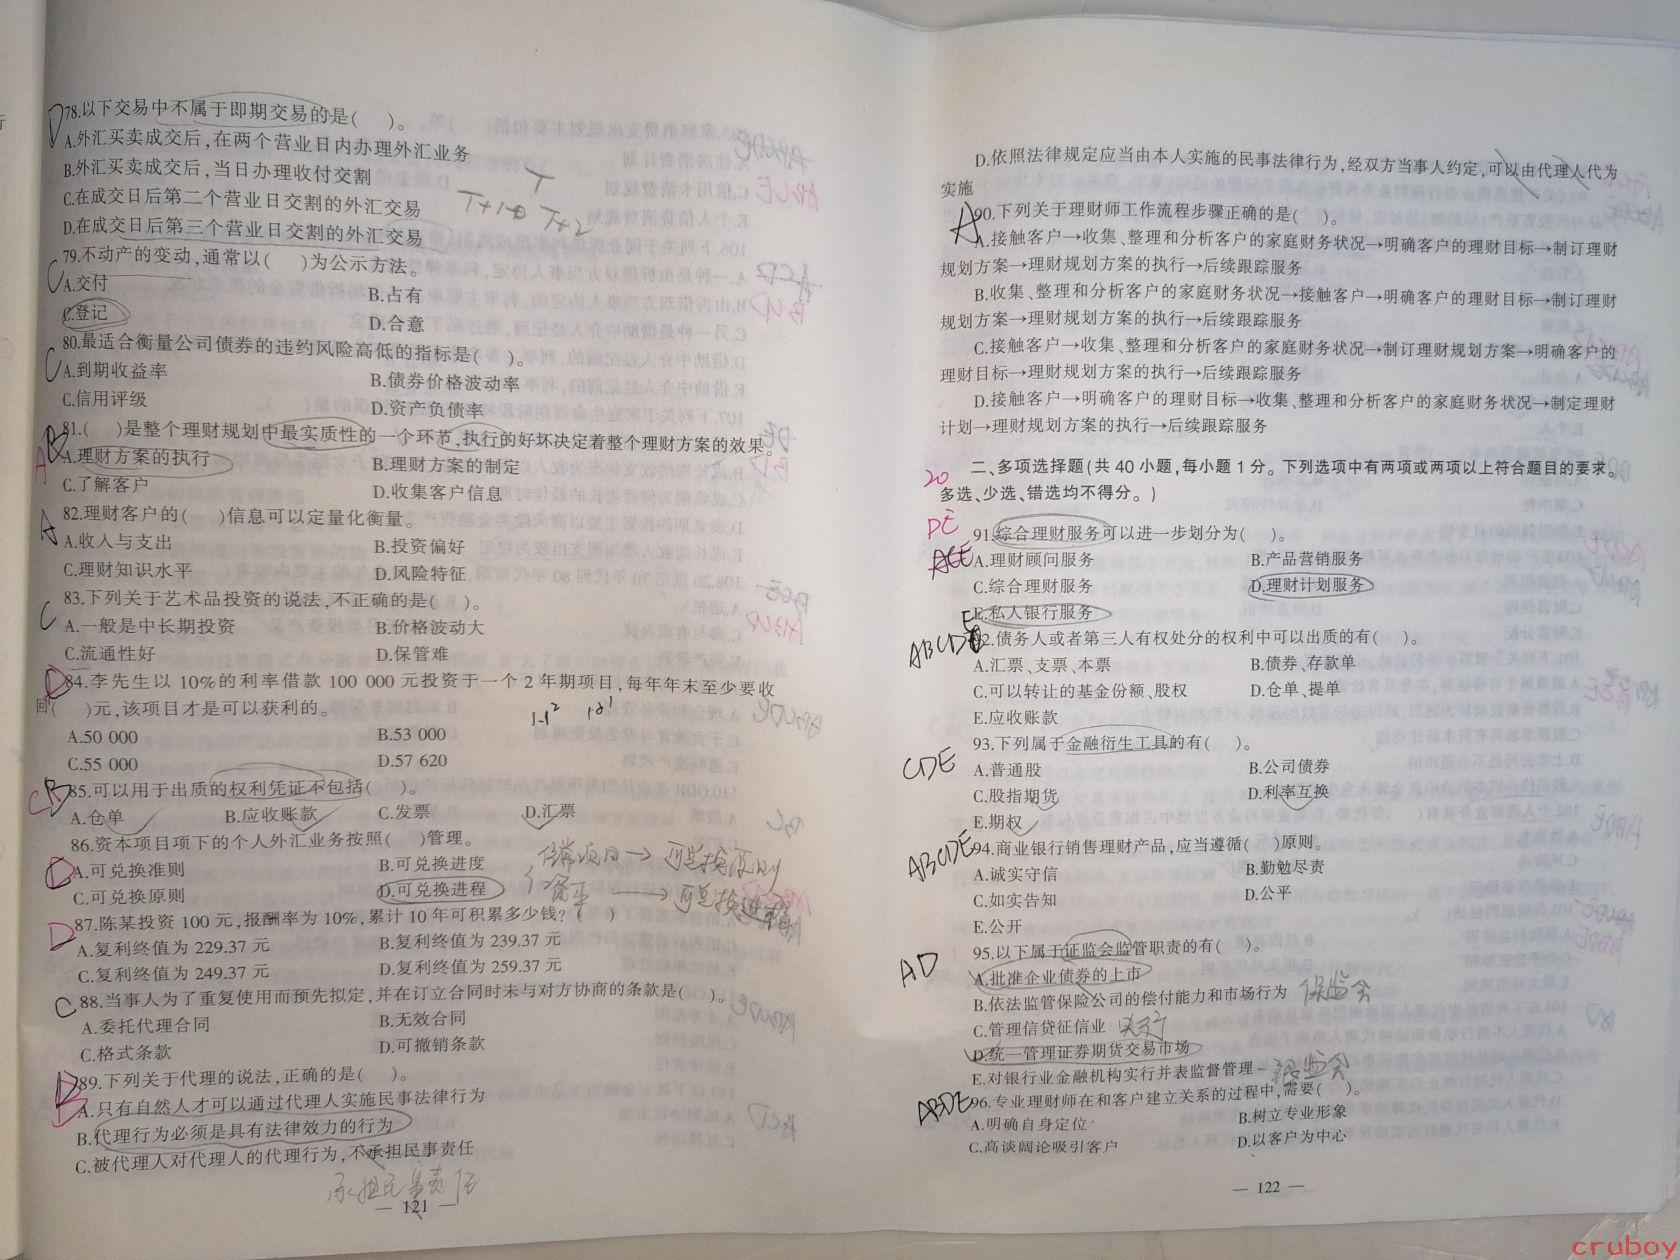 D 78.以下交易中不属于即期交易的是(　)。
A.外汇买卖成交后,在两个营业日内办理外汇业务
B.外汇买卖成交后,当日办理收付交割
T
C.在成交日后第二个营业日交割的外汇交易
T+2
D.在成交日后第三个营业日交割的外汇交易
C 79.不动产的变动,通常以(　)为公示方法。
A.交付 B.占有
C.登记 D.合意
C 80.最适合衡量公司债券的违约风险高低的指标是(　)。
A.到期收益率 B.债券价格波动率
C.信用评级 D.资产负债率
B 81.(　)是整个理财规划中最实质性的一个环节,执行的好坏决定着整个理财方案的效果。
A A.理财方案的执行 B.理财方案的制定
C.了解客户 D.收集客户信息
A 82.理财客户的(　)信息可以定量化衡量。
A.收入与支出 B.投资偏好
C.理财知识水平 D.风险特征
C 83.下列关于艺术品投资的说法,不正确的是(　)。
A.一般是中长期投资 B.价格波动大
C.流通性好 D.保管难
D 84.李先生以 10%的利率借款 100 000 元投资于一个 2 年期项目,每年年末至少要收
回(　)元,该项目才是可以获利的。
A.50 000 B.53 000
C.55 000 D.57 620
C B 85.可以用于出质的权利凭证不包括(　)。
A.仓单 B.应收账款 C.发票 D.汇票
86.资本项目项下的个人外汇业务按照(　)管理。
D A.可兑换准则 B.可兑换进度
C.可兑换原则 D.可兑换进程
经常项目→可兑换原则
资本→可兑换进程
D 87.陈某投资 100 元,报酬率为 10%,累计 10 年可积累多少钱?(　)
A.复利终值为 229.37 元 B.复利终值为 239.37 元
C.复利终值为 249.37 元 D.复利终值为 259.37 元
C 88.当事人为了重复使用而预先拟定,并在订立合同时未与对方协商的条款是(　)。
A.委托代理合同 B.无效合同
C.格式条款 D.可撤销条款
B 89.下列关于代理的说法,正确的是(　)。
A.只有自然人才可以通过代理人实施民事法律行为
B.代理行为必须是具有法律效力的行为
C.被代理人对代理人的代理行为,不承担民事责任
承担民事责任
— 121 —
D.依照法律规定应当由本人实施的民事法律行为,经双方当事人约定,可以由代理人代为
实施
A 90.下列关于理财师工作流程步骤正确的是(　)。
A.接触客户→收集、整理和分析客户的家庭财务状况→明确客户的理财目标→制订理财
规划方案→理财规划方案的执行→后续跟踪服务
B.收集、整理和分析客户的家庭财务状况→接触客户→明确客户的理财目标→制订理财
规划方案→理财规划方案的执行→后续跟踪服务
C.接触客户→收集、整理和分析客户的家庭财务状况→制订理财规划方案→明确客户的
理财目标→理财规划方案的执行→后续跟踪服务
D.接触客户→明确客户的理财目标→收集、整理和分析客户的家庭财务状况→制定理财
计划→理财规划方案的执行→后续跟踪服务
二、多项选择题(共 40 小题,每小题 1 分。下列选项中有两项或两项以上符合题目的要求。
20
多选、少选、错选均不得分。)
DE
91.综合理财服务可以进一步划分为(　)。
ACE A.理财顾问服务 B.产品营销服务
C.综合理财服务 D.理财计划服务
E.私人银行服务
ABCDE 92.债务人或者第三人有权处分的权利中可以出质的有(　)。
A.汇票、支票、本票 B.债券、存款单
C.可以转让的基金份额、股权 D.仓单、提单
E.应收账款
93.下列属于金融衍生工具的有(　)。
CDE A.普通股 B.公司债券
C.股指期货 D.利率互换
E.期权
ABCDE 94.商业银行销售理财产品,应当遵循(　)原则。
A.诚实守信 B.勤勉尽责
C.如实告知 D.公平
E.公开
95.以下属于证监会监管职责的有(　)。
AD A.批准企业债券的上市
B.依法监管保险公司的偿付能力和市场行为 保监会
C.管理信贷征信业 央行
D.统一管理证券期货交易市场
E.对银行业金融机构实行并表监督管理 银监会
ABDE 96.专业理财师在和客户建立关系的过程中,需要(　)。
A.明确自身定位 B.树立专业形象
C.高谈阔论吸引客户 D.以客户为中心
— 122 —
cruboy